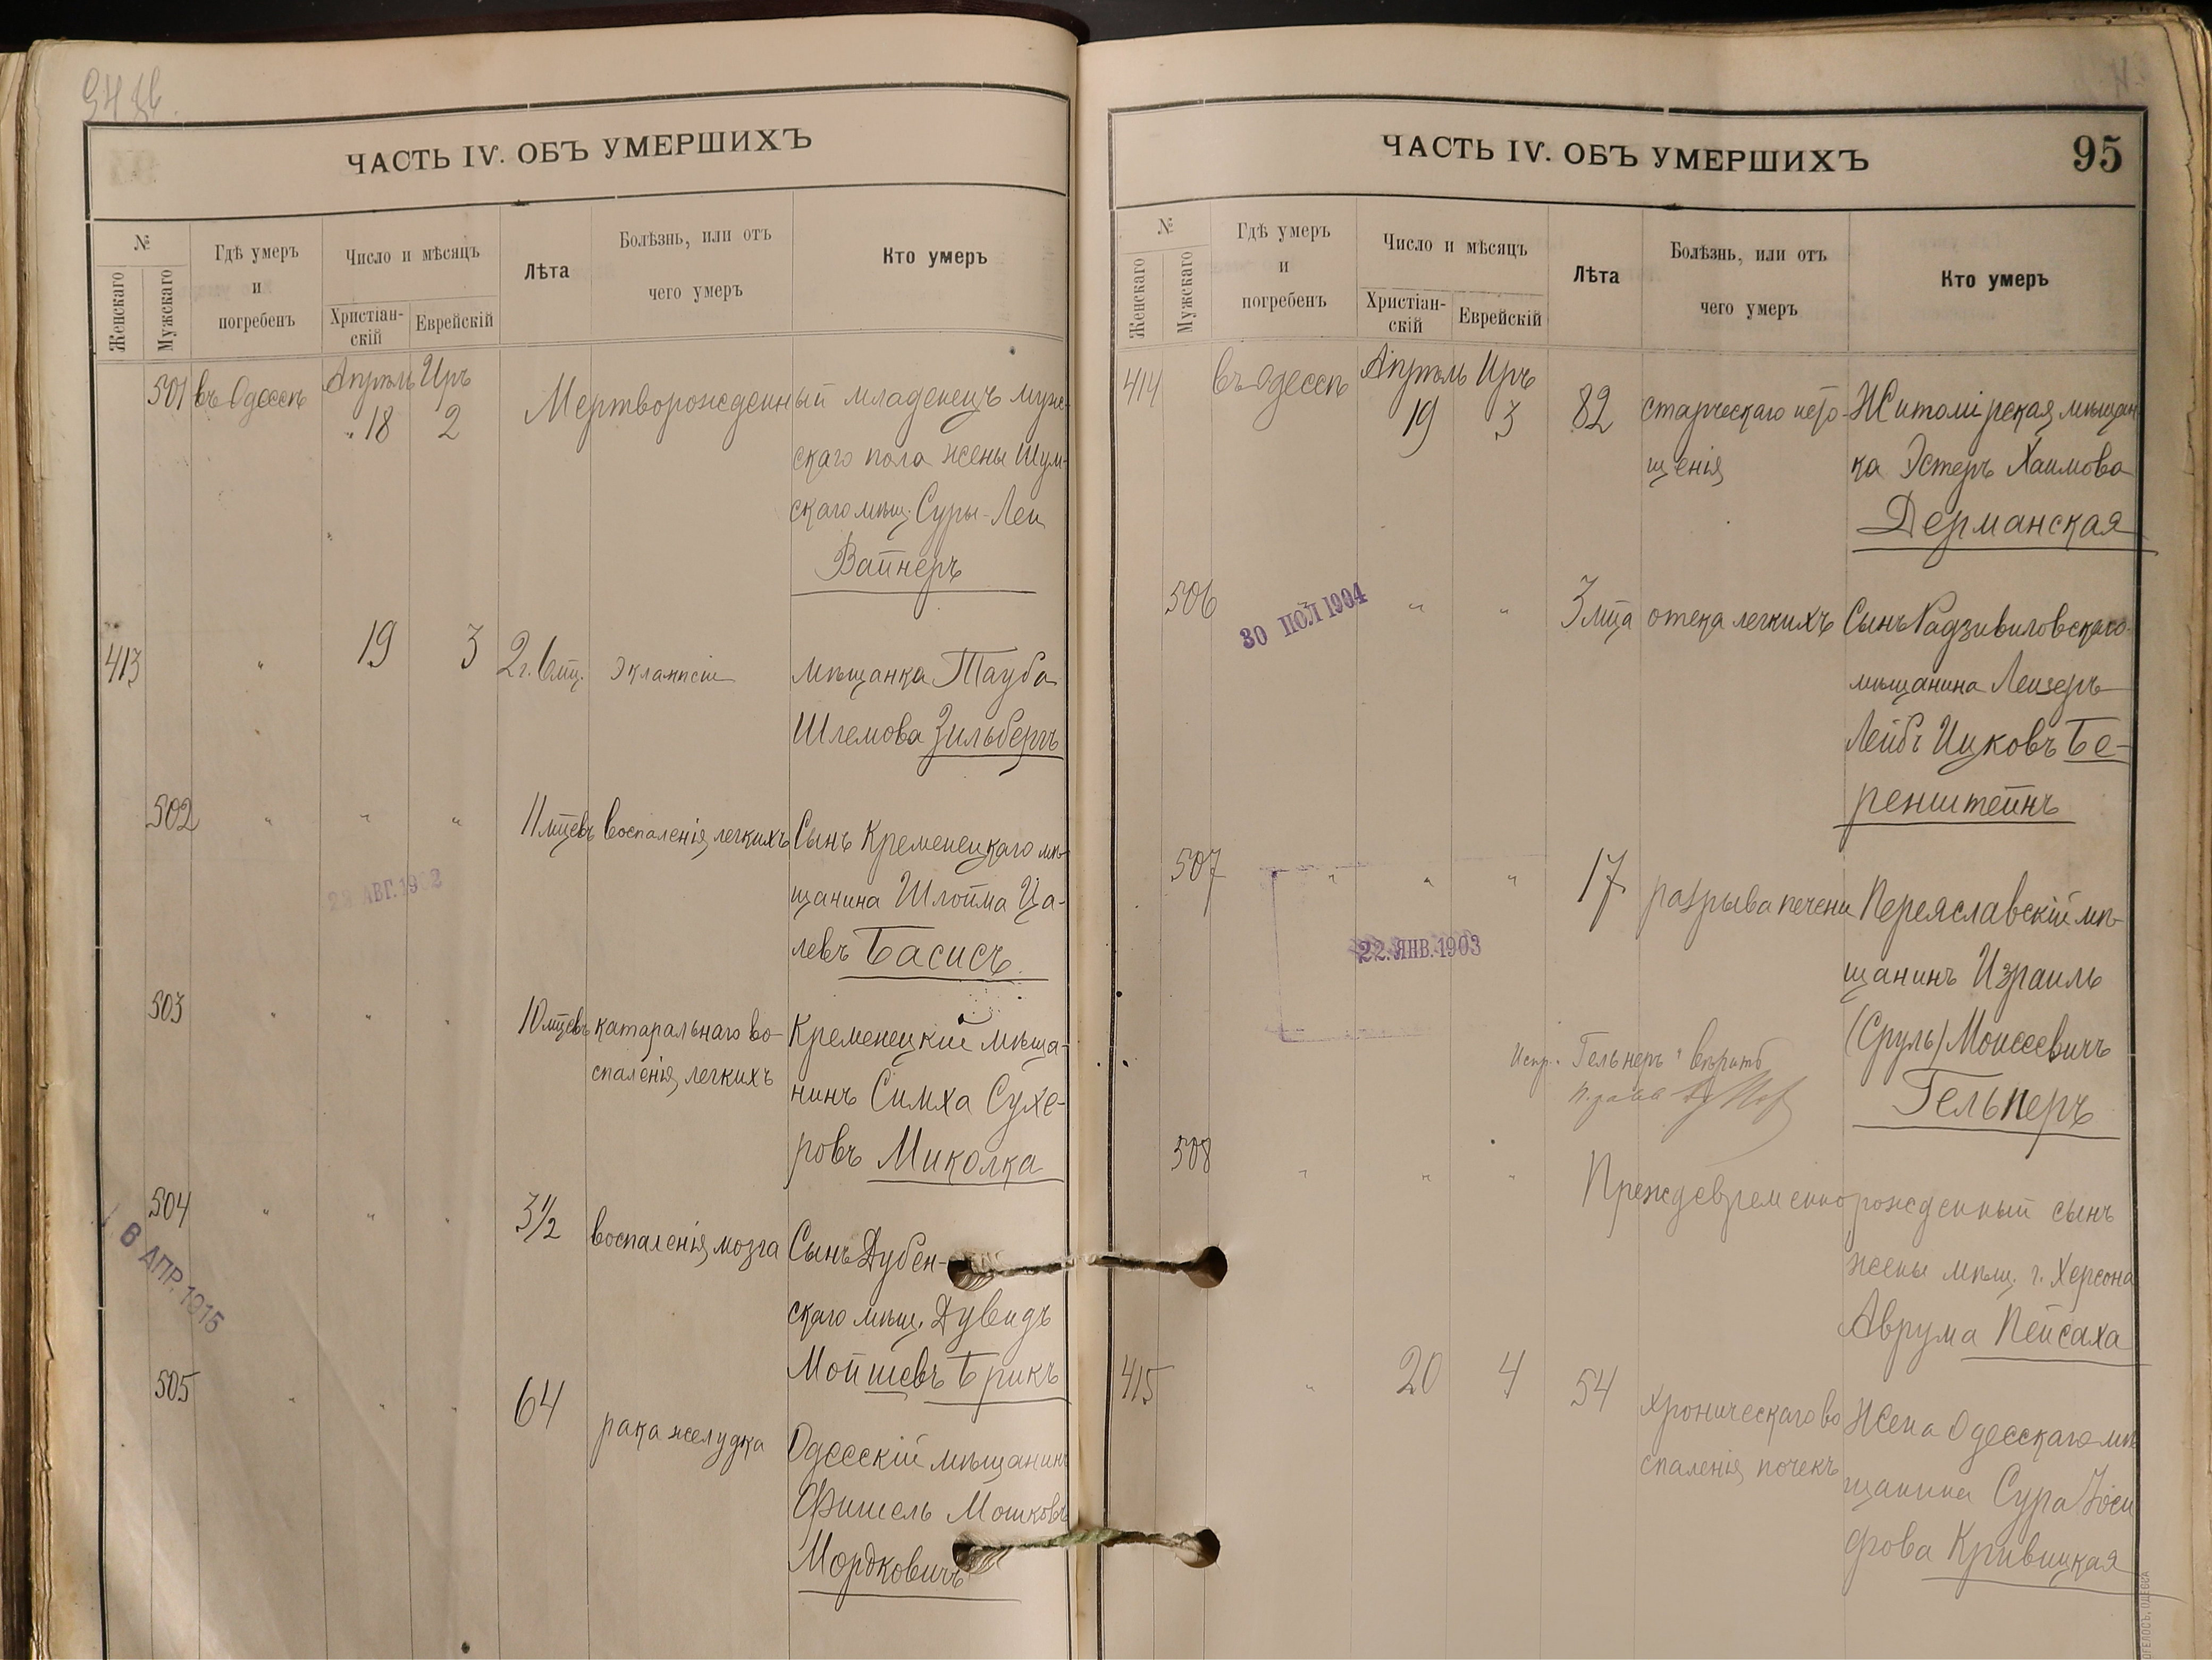 ЧАСТЬ IV. ОБЪ УМЕРШИХЪ
№
Женскаго
Мужскаго
Гдѣ умеръ
и
погребенъ
Число и мѣсяцъ
Христіан-
скій
Еврейскій
Лѣта
Болѣзнь, или отъ
чего умеръ
Кто умеръ
501 въ Одессѣ Апрѣль Иръ
18 2
Мертворожденный младенецъ муж-
скаго пола жены Шум-
скаго мѣщ. Суры-Леи
Вайнеръ
413 " 19 3 2 г. 6 мц. Эклампсіи мѣщанка Тауба
Шлемова Зильбергъ
502 " " " 11 мцевъ воспаленія легкихъ Сынъ Кременецкаго мѣ-
щанина Шлойма Ца-
левъ Басисъ
28 АВГ. 1902
503 " " " 10 мцевъ катаральнаго во-
спаленія легкихъ
Кременецкій мѣща-
нинъ Симха Сухе-
ровъ Миколка
504 " " " 3½ воспаленія мозга Сынъ Дубен-
скаго мѣщ. Дувидъ
Мойшевъ Брикъ
6 АПР. 1915
505 " " " 64 рака желудка Одесскій мѣщанинъ
Фишель Мошковъ
Мордковичъ
ЧАСТЬ IV. ОБЪ УМЕРШИХЪ
95
№
Женскаго
Мужскаго
Гдѣ умеръ
и
погребенъ
Число и мѣсяцъ
Христіан-
скій
Еврейскій
Лѣта
Болѣзнь, или отъ
чего умеръ
Кто умеръ
414 въ Одессѣ Апрѣль Иръ
19 3 82 старческаго исто-
щенія
Житомірская мѣщан
ка Эстеръ Хаимова
Дерманская
506 " " 3 мца отека легкихъ Сынъ Радзивиловскаго
мѣщанина Лейзеръ
Лейбъ Ицковъ Бе-
ренштейнъ
30 ІЮЛ 1904
507 " " " 17 разрыва печени Переяславскій мѣ-
щанинъ Израиль
(Сруль) Моисеевичъ
Гельперъ
22. ЯНВ. 1903
Испр. "Гельнеръ" вѣрить
508 " " " Преждевременнорожденный сынъ
жены мѣщ. г. Херсона
Аврума Пейсаха
415 " 20 4 54 хроническаго во
спаленія почекъ
Жена Одесскаго мѣ
щанина Сура Іоси
фова Кривицкая